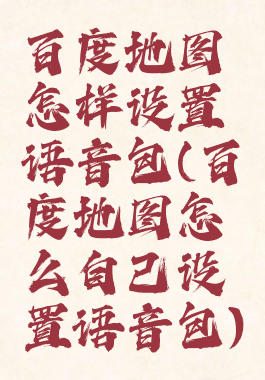 百度地图
怎样设置
语音包(百
度地图怎
么自己设
置语音包)